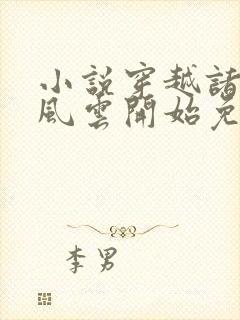 小說穿越諸
風雲開始免
李男